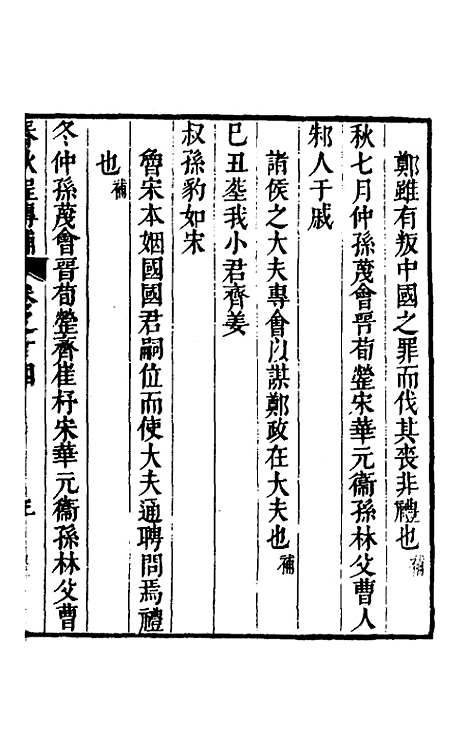 鄭雖有叛中國之罪而伐其喪非禮也補
秋七月仲孫蔑會晉荀罃宋華元衞孫林父曹人
邾人于戚
諸侯之大夫專會以謀鄭政在大夫也補
已丑葬我小君齊姜
叔孫豹如宋
魯宋本姻國國君嗣位而使大夫通聘問焉禮
也補
冬仲孫蔑會晉荀罃齊崔杼宋華元衞孫林父曹
春秋程傳補 卷之十四